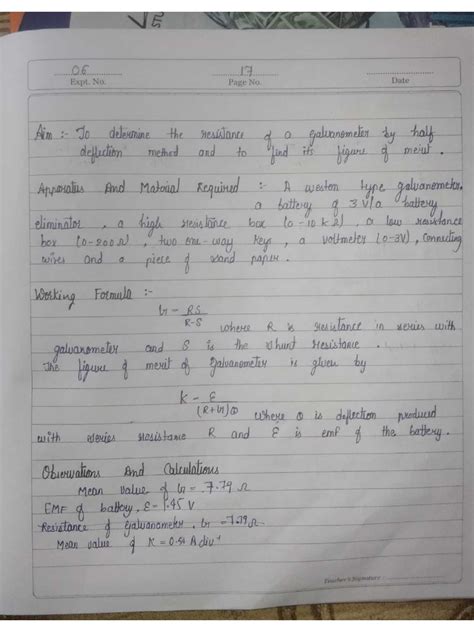 STU
06
17
Expt. No.
Page No.
Date
Aim :- To determine the resistance of a galvanometer by half
deflection method and to find its figure of merit.
Apparatus And Material Required :- A weston type galvanometer,
a battery of 3 V/a battery
eliminator, a high resistance box (0-10 k Ω), a low resistance
box (0-200 Ω), two one-way keys, a voltmeter (0-3V), connecting
wires and a piece of sand paper.
Working Formula :-
G = RS
R-S
where R is resistance in series with
galvanometer and S is the shunt resistance.
The figure of merit of galvanometer is given by
K = E
(R+G)θ
where θ is deflection produced
with series resistance R and E is emf of the battery.
Observations And Calculations
Mean value of G = 7.79 Ω
EMF of battery, E = 1.45 V
Resistance of galvanometer, G = 7.79 Ω
Mean value of K = 0.54 A div⁻¹
Teacher's Signature